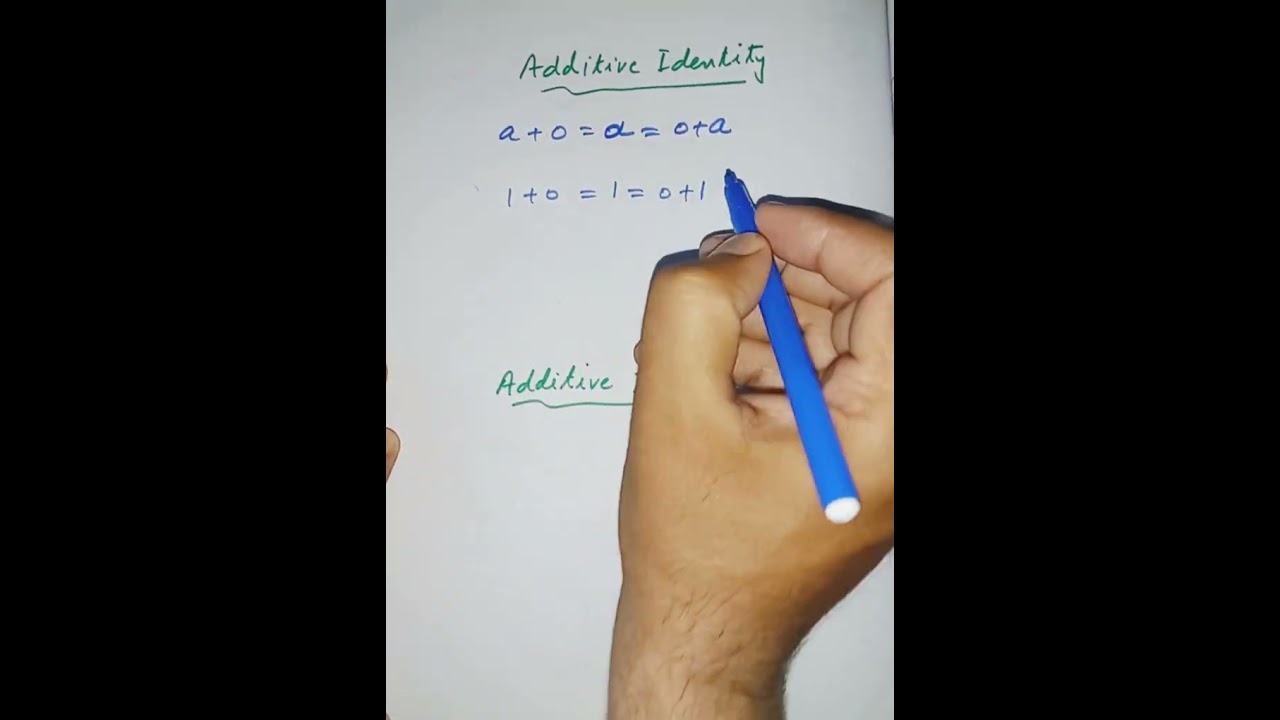 Additive Identity
a + 0 = a = 0+a
1 + 0 = 1 = 0 + 1
Additive